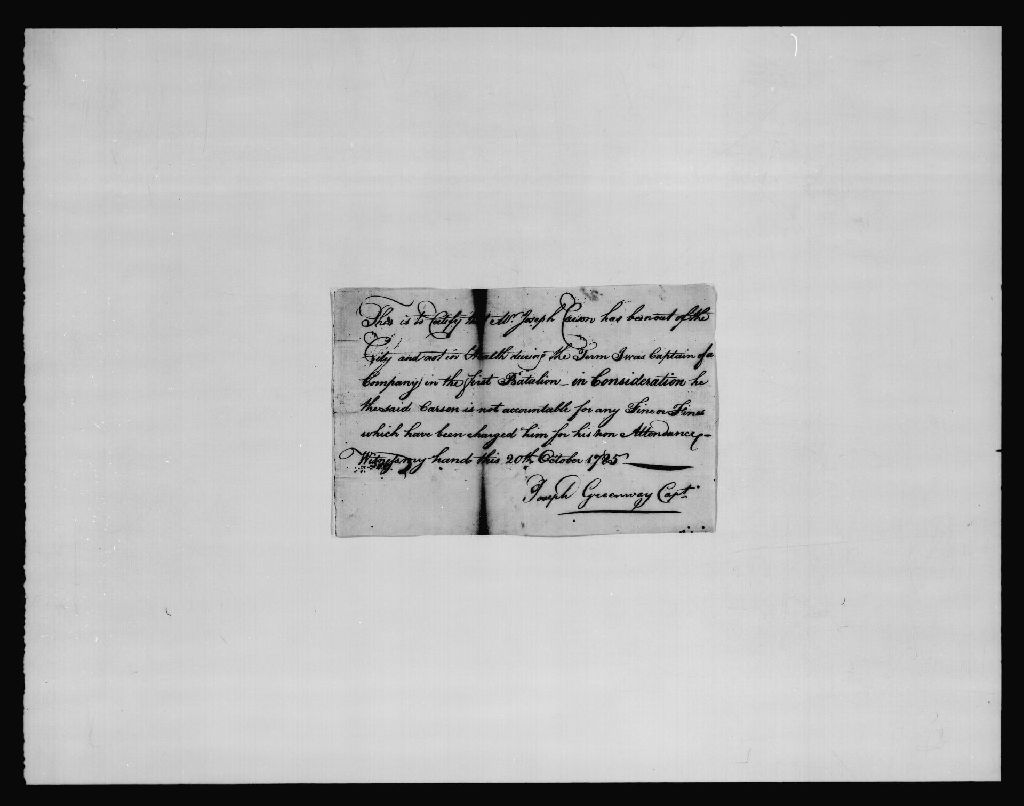 This is to Certify that Mr. Joseph Carson has been out of the
City and not in Health during the Term I was Captain of a
Company in the first Batalion in Consideration he
the said Carson is not accountable for any Fine or Fines
which have been charged him for his non Attendance -
Witness my hand this 20th October 1785
Joseph Greenway Capt.